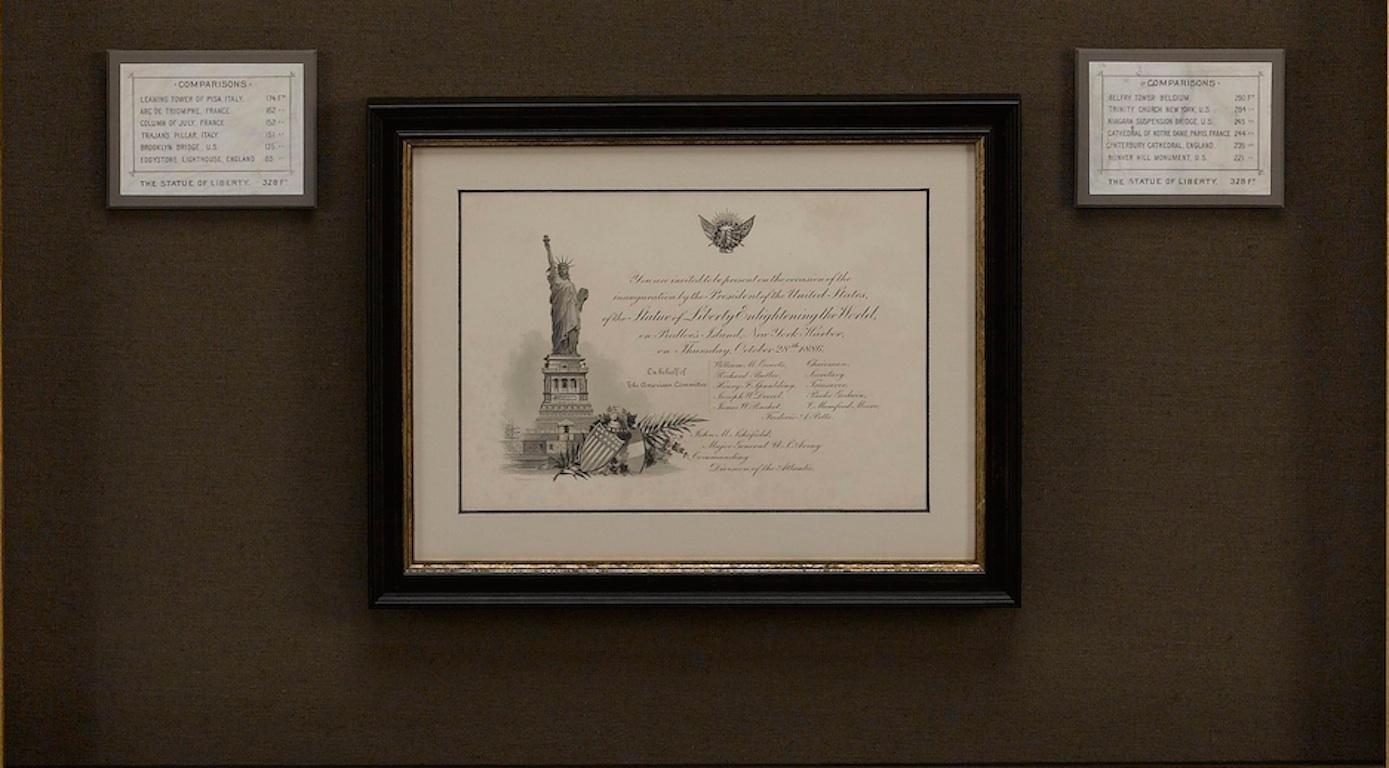 COMPARISONS
LEANING TOWER OF PISA, ITALY. 174 FT
ARC DE TRIOMPHE, FRANCE 162 "
COLUMN OF JULY, FRANCE 152 "
TRAJANS PILLAR, ITALY 151 "
BROOKLYN BRIDGE, U.S. 135 "
EDDYSTONE LIGHTHOUSE, ENGLAND 85 "
THE STATUE OF LIBERTY. 328 FT
COMPARISONS
BELFRY TOWER BELGIUM 290 FT
TRINITY CHURCH NEW YORK, U.S. 284 "
NIAGARA SUSPENSION BRIDGE, U.S. 245 "
CATHEDRAL OF NOTRE DAME PARIS, FRANCE 244 "
CANTERBURY CATHEDRAL, ENGLAND. 235 "
BUNKER HILL MONUMENT, U.S. 221 "
THE STATUE OF LIBERTY. 328 FT
You are invited to be present on the occasion of the
inauguration by the President of the United States,
of the Statue of Liberty Enlightening the World,
on Bedloe's Island, New York Harbor,
on Thursday, October 28th 1886.
On behalf of
The American Committee
William M. Evarts, Chairman,
Richard Butler, Secretary,
Henry F. Spaulding, Treasurer,
Joseph W. Drexel, Parke Godwin,
James W. Pinchot, V. Mumford Moore,
Frederic A. Potts.
John M. Schofield,
Major General U.S. Army
Commanding
Division of the Atlantic.